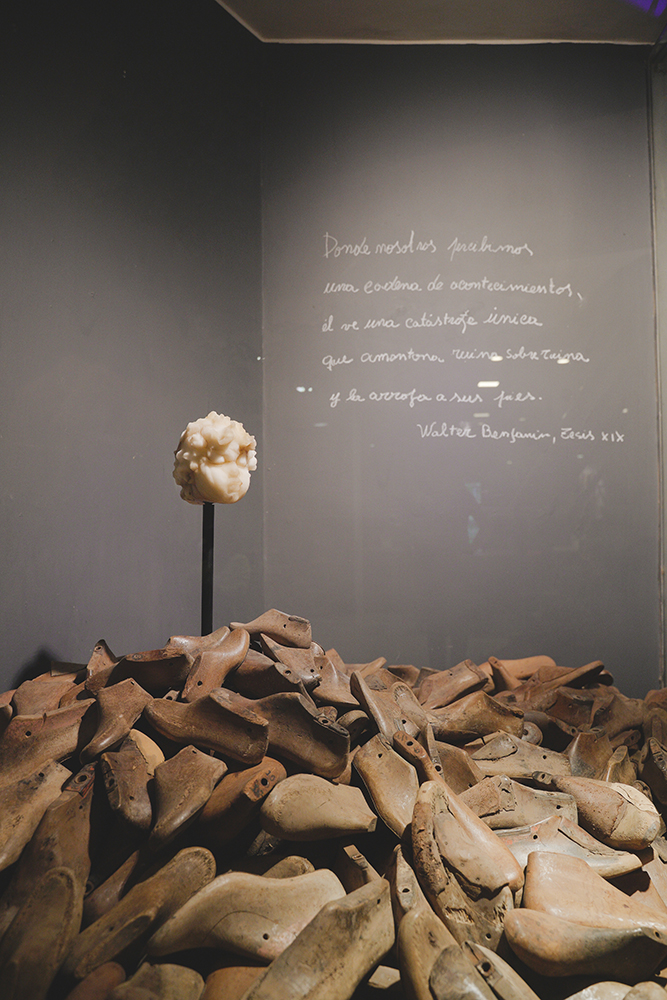 Donde nosotros percibimos
una cadena de acontecimientos,
él ve una catástrofe única
que amontona ruina sobre ruina
y la arroja a sus pies.
Walter Benjamin, Tesis XIX